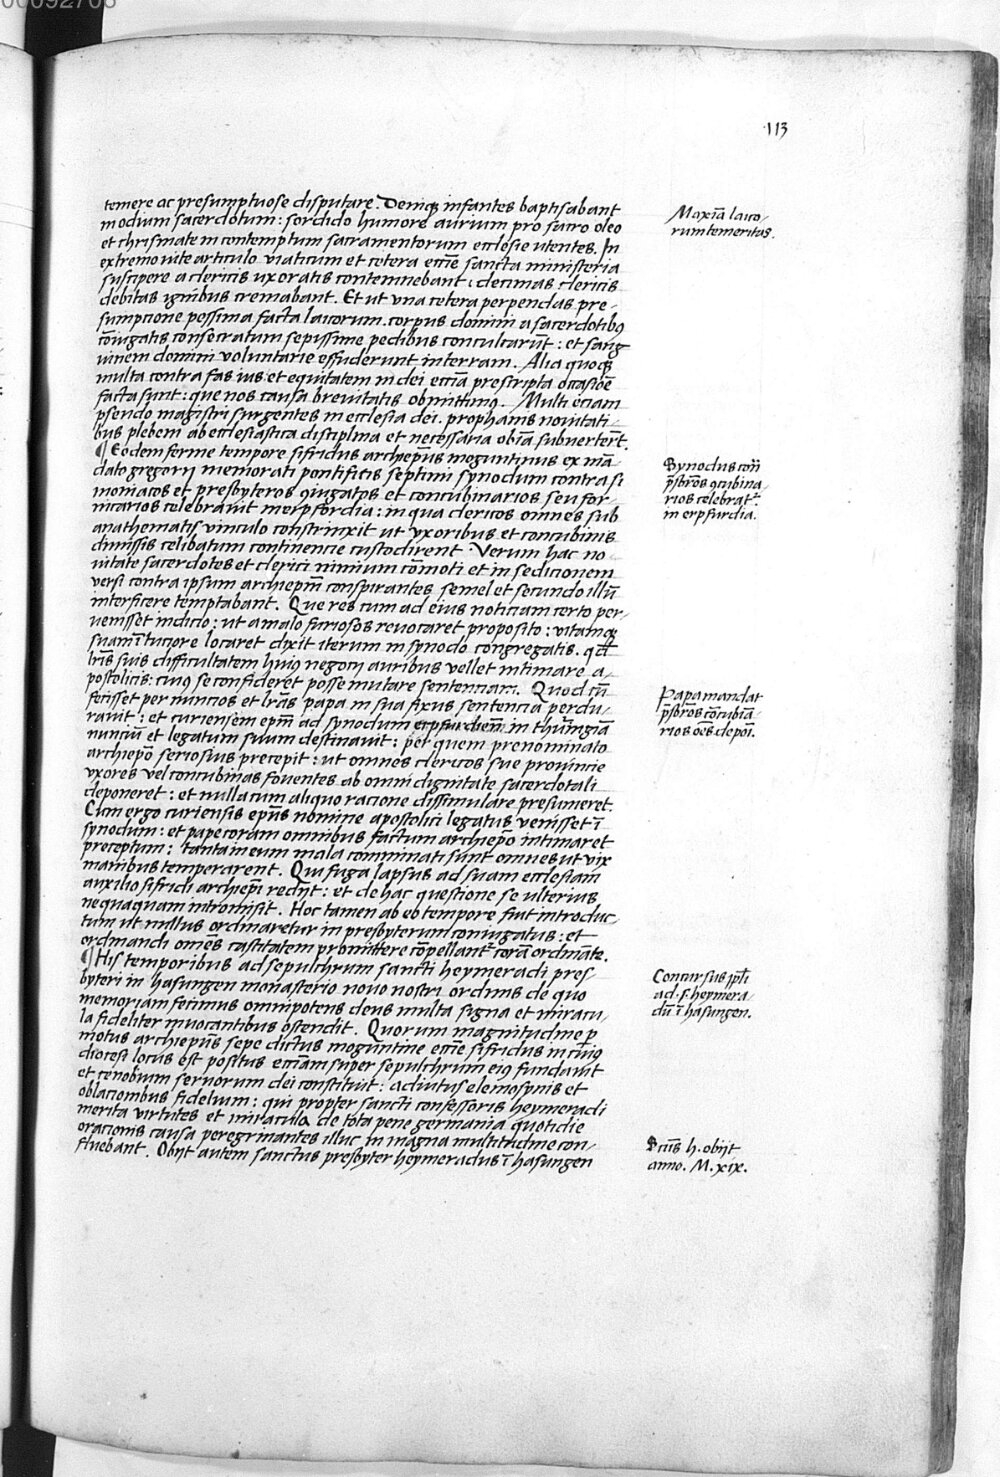 113
temere ac presumptuose disputare. Deniqꝫ infantes baptisabant
modium sacerdotum: sordido humore aurium pro sacro oleo
et chrismate in contemptum sacramentorum ecclesie utentes. In
extremo uite articulo viaticum et cetera eccīe sancta ministeria
suscipere a clericis uxoratis contemnebant: decimas clericis
debitas ignibus cremabant. Et ut vna cetera perpendas pre-
sumpcione pessima facta laicorum. corpus domini a sacerdotibꝰ
cōiugatis consecratum sepissime pedibus conculcarūt: et sang
uinem domini voluntarie effuderunt in terram. Alia quoqꝫ
multa contra fas ius et equitatem in dei eccīa prescripta occasiōe
facta sunt: que nos causa breuitatis obmittimꝰ. Multi eciam
pseudo magistri surgentes in ecclesia dei. prophanis nouitati-
bus plebem ab ecclesiastica disciplina et necessaria obīa subuerterūt.
¶ Eodem ferme tempore sifridus archiep̄us moguntinus ex mā-
dato gregorij memorati pontificis septimi synodum contra si
moniacos et presbyteros ꝯiugatos et concubinarios seu for-
nicarios celebrauit in erpfordia: in qua clericos omnes sub
anathematis vinculo constrinxit ut vxoribus et concubinis
dimissis celibatum continencie custodirent. Verum hac no-
uitate sacerdotes et clerici nimium cōmoti et in sedicionem
versi contra ipsum archiep̄m conspirantes semel et secundo illū
interficere temptabant. Que res cum ad eius noticiam certo per-
uenisset indicio: ut a malo furiosos reuocaret proposito: vitamqꝫ
suam ī tuciore locaret dixit iterum in synodo congregatis. qd̄
lr̄is suis difficultatem huiꝰ negocij auribus vellet intimare a-
postolicis: cuiꝰ se confideret posse mutare sentenciam. Quod cū
fecisset per nuncios et lr̄as papa in sua fixus sentencia perdu-
rauit: et curiensem ep̄m ad synodum erpfurdiens̄ in thuringiā
nunciū et legatum suum destinauit: per quem prenominato
archiep̄o seriosius precepit: ut omnes clericos sue prouincie
vxores vel concubinas fouentes ab omni dignitate sacerdotali
deponeret: et nulla cum aliquo racione dissimulare presumeret.
Cum ergo curiensis ep̄us nomine apostolici legatus venisset ī
synodum: et pape coram omnibus factum archiep̄o intimaret
preceptum: tanta in eum mala comminati sunt omnes ut vix
manibus temperarent. Qui fuga lapsus ad suam ecclesiam
auxilio sifridi archiep̄i redijt: et de hac questione se ulterius
nequaquam intromisit. Hoc tamen ab eo tempore fuit introduc-
tum ut nullus ordinaretur in presbyterum coniugatus: et
ordinandi omēs castitatem promittere cōpellantꝛ corā ordināte.
¶ His temporibus ad sepulchrum sancti heymeradi pres-
byteri in hasungen monasterio nouo nostri ordinis de quo
memoriam fecimus omnipotens deus multa signa et miracu-
la fideliter inuocantibus ostendit. Quorum magnitudine ꝑ
motus archiep̄us sepe dictus moguntine eccīe sifridus in cuiꝰ
diocesi locus est positus ecciam super sepulchrum eiꝰ fundauit
et cenobium seruorum dei constituit: adiutus elemosynis et
oblacionibus fidelium: qui propter sancti confessoris heymeradi
merita virtutes et miracula de tota pene germania quotidie
oracionis causa peregrinantes illuc in magna multitudine con-
fluebant. Obijt autem sanctus presbyter heymeradus ī hasungen
Maxīa laico-
rum temeritas.
Synodus cont̄
p̄sbrōs ꝯcubina-
rios celebratꝛ
in erpfurdia.
Papa mandat
p̄sbrōs cōcubiā-
rios oēs depoī.
Concursus pl̄i
ad .s. heymera-
dū ī hasungen.
Sctūs h. obijt
anno. M. xix.